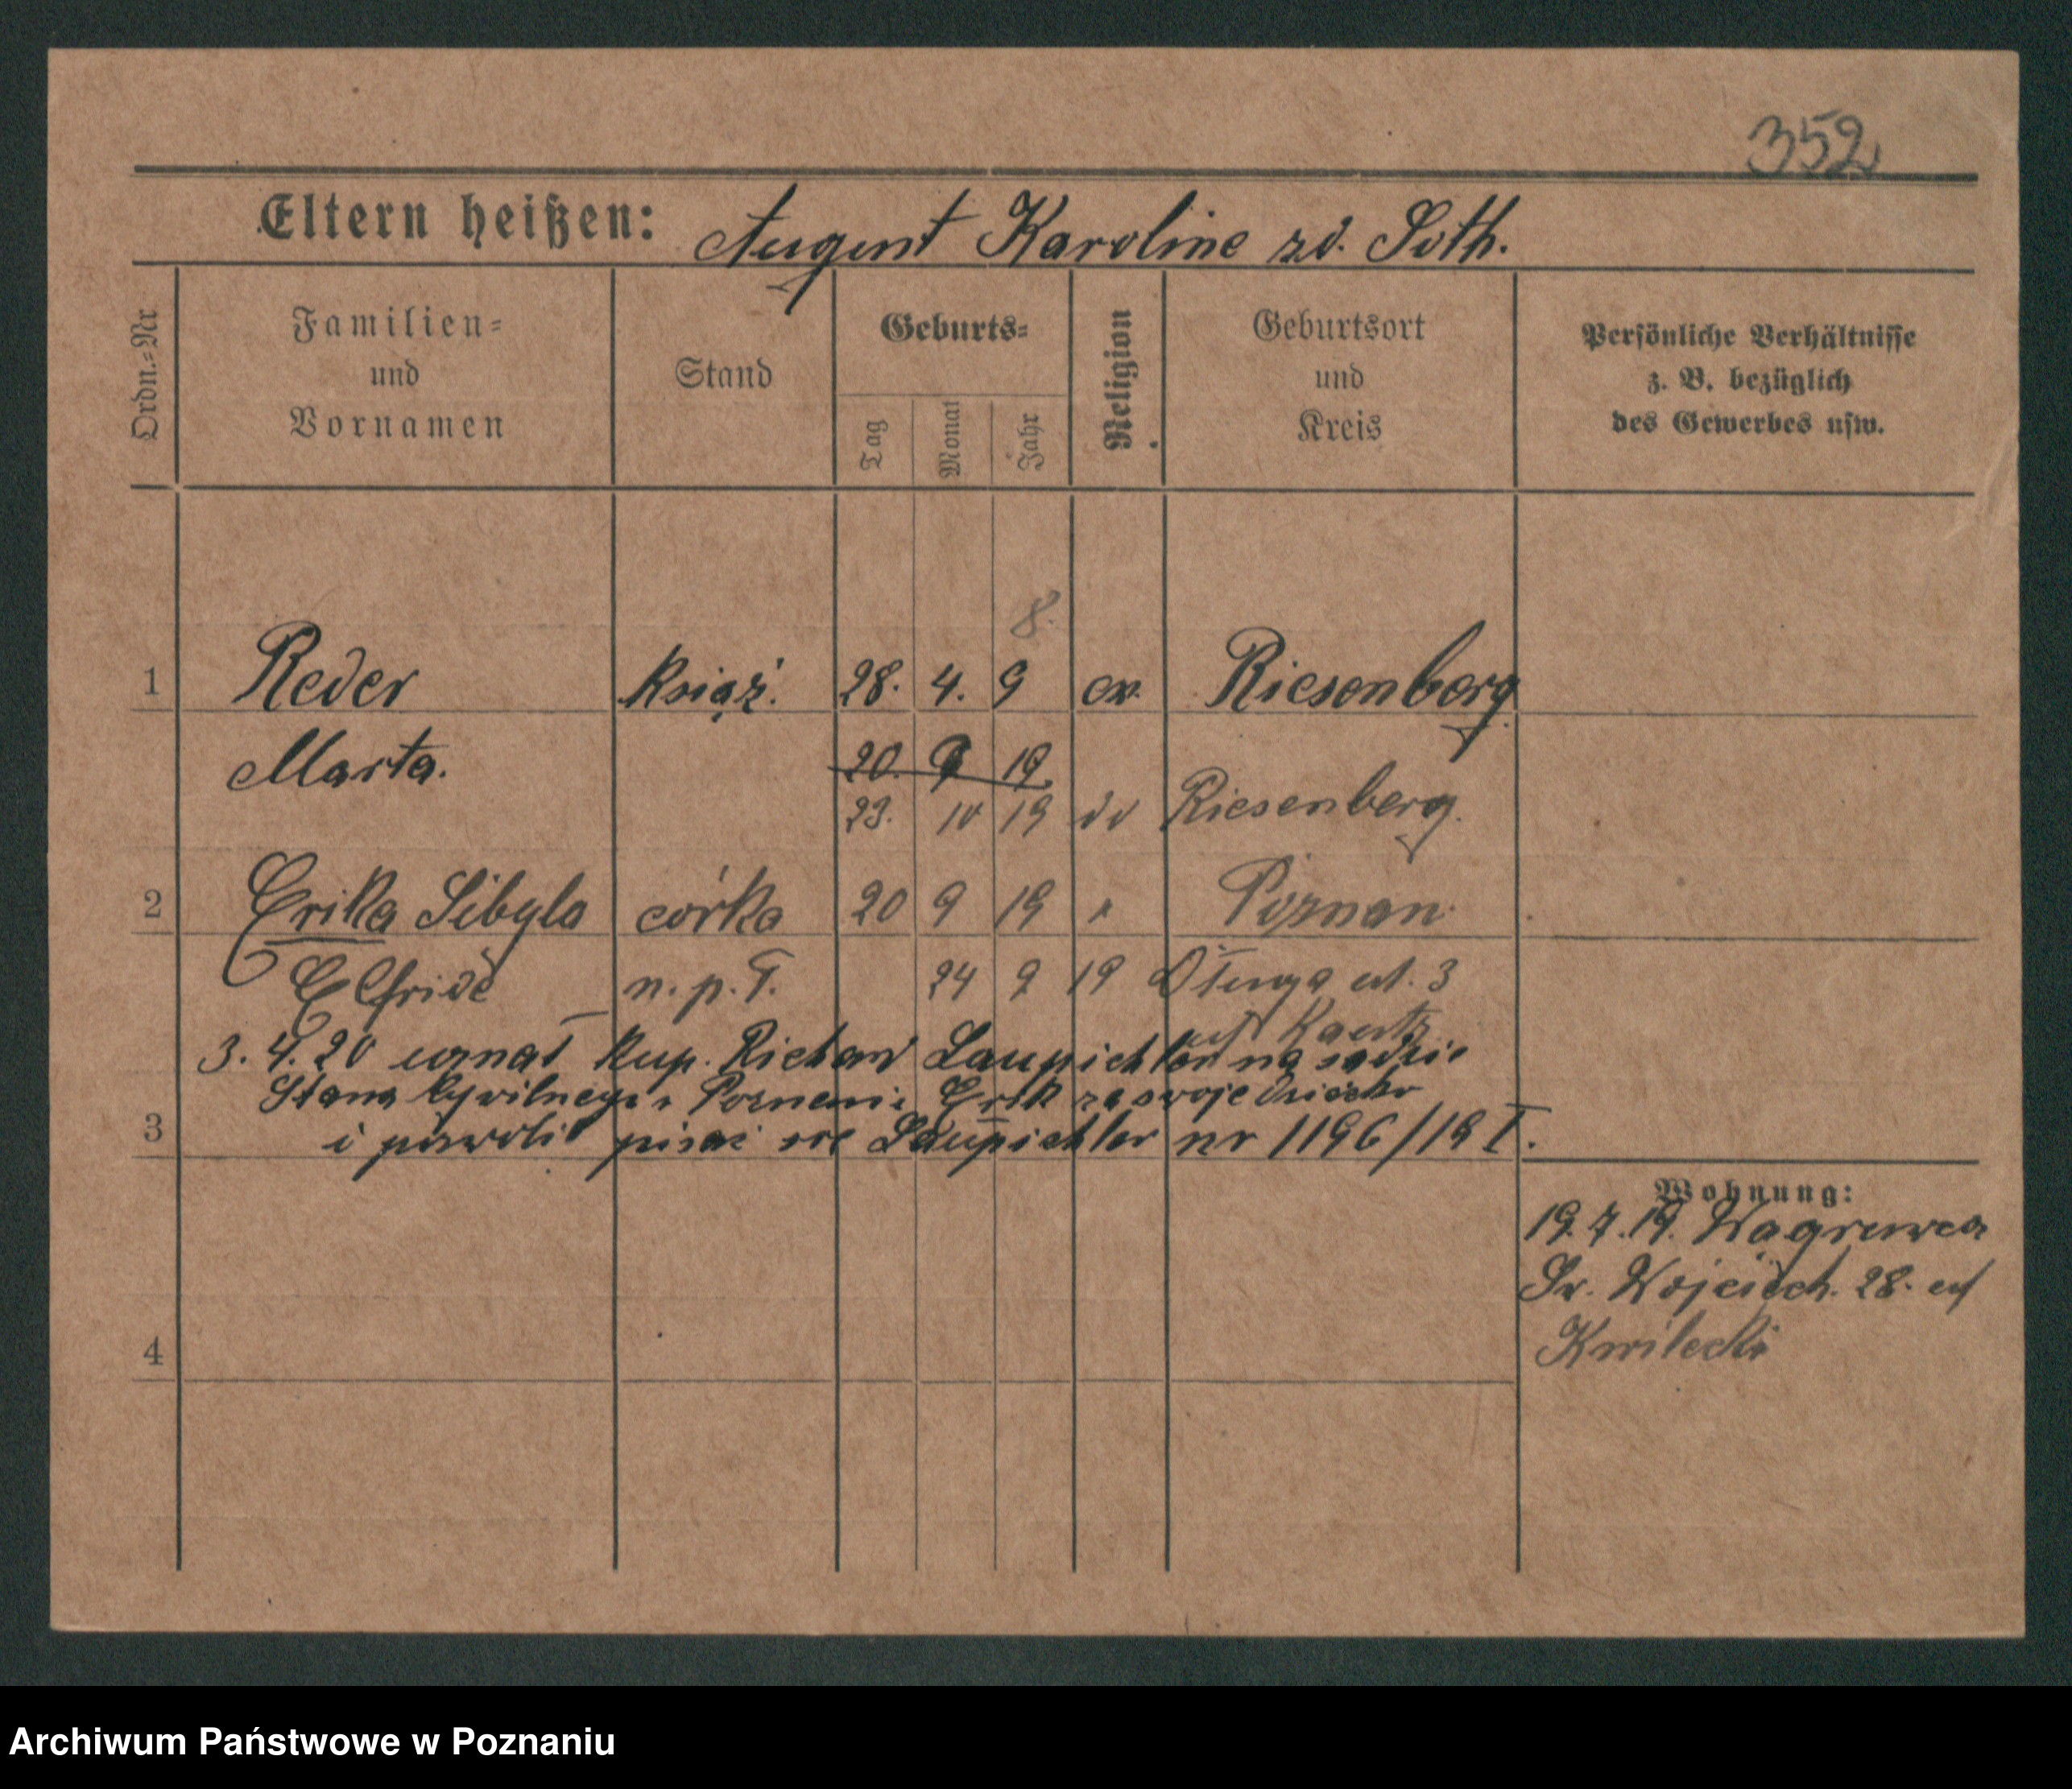 352
Eltern heißen: August Karoline zd. Soth.
Ordn.=Nr
Familien=
und
Vornamen
Stand
Geburts=
Tag
Monat
Jahr
Religion
Geburtsort
und
Kreis
Persönliche Verhältnisse
z. B. bezüglich
des Gewerbes usw.
8.
1 Reder książ. 28. 4. 9 ew. Riesenberg
Marta. 20. 9 19
23. 10 19 do Riesenberg.
2 Erika Sibyla córka 20 9 19 Poznań
Elfride n. p. T. 24 9 19 Długa 3
3. 4. 20 uznał kup. Richard Laupichler na
Stanu Cywilnego Poznani Erik za swoje dziecko
3 i pozwolił pisać się Laupichler nr 1196/19 I.
Wohnung:
19. 7. 19. Wągrowca
Św. Wojciech. 28.
Kwilecki
4
Archiwum Państwowe w Poznaniu